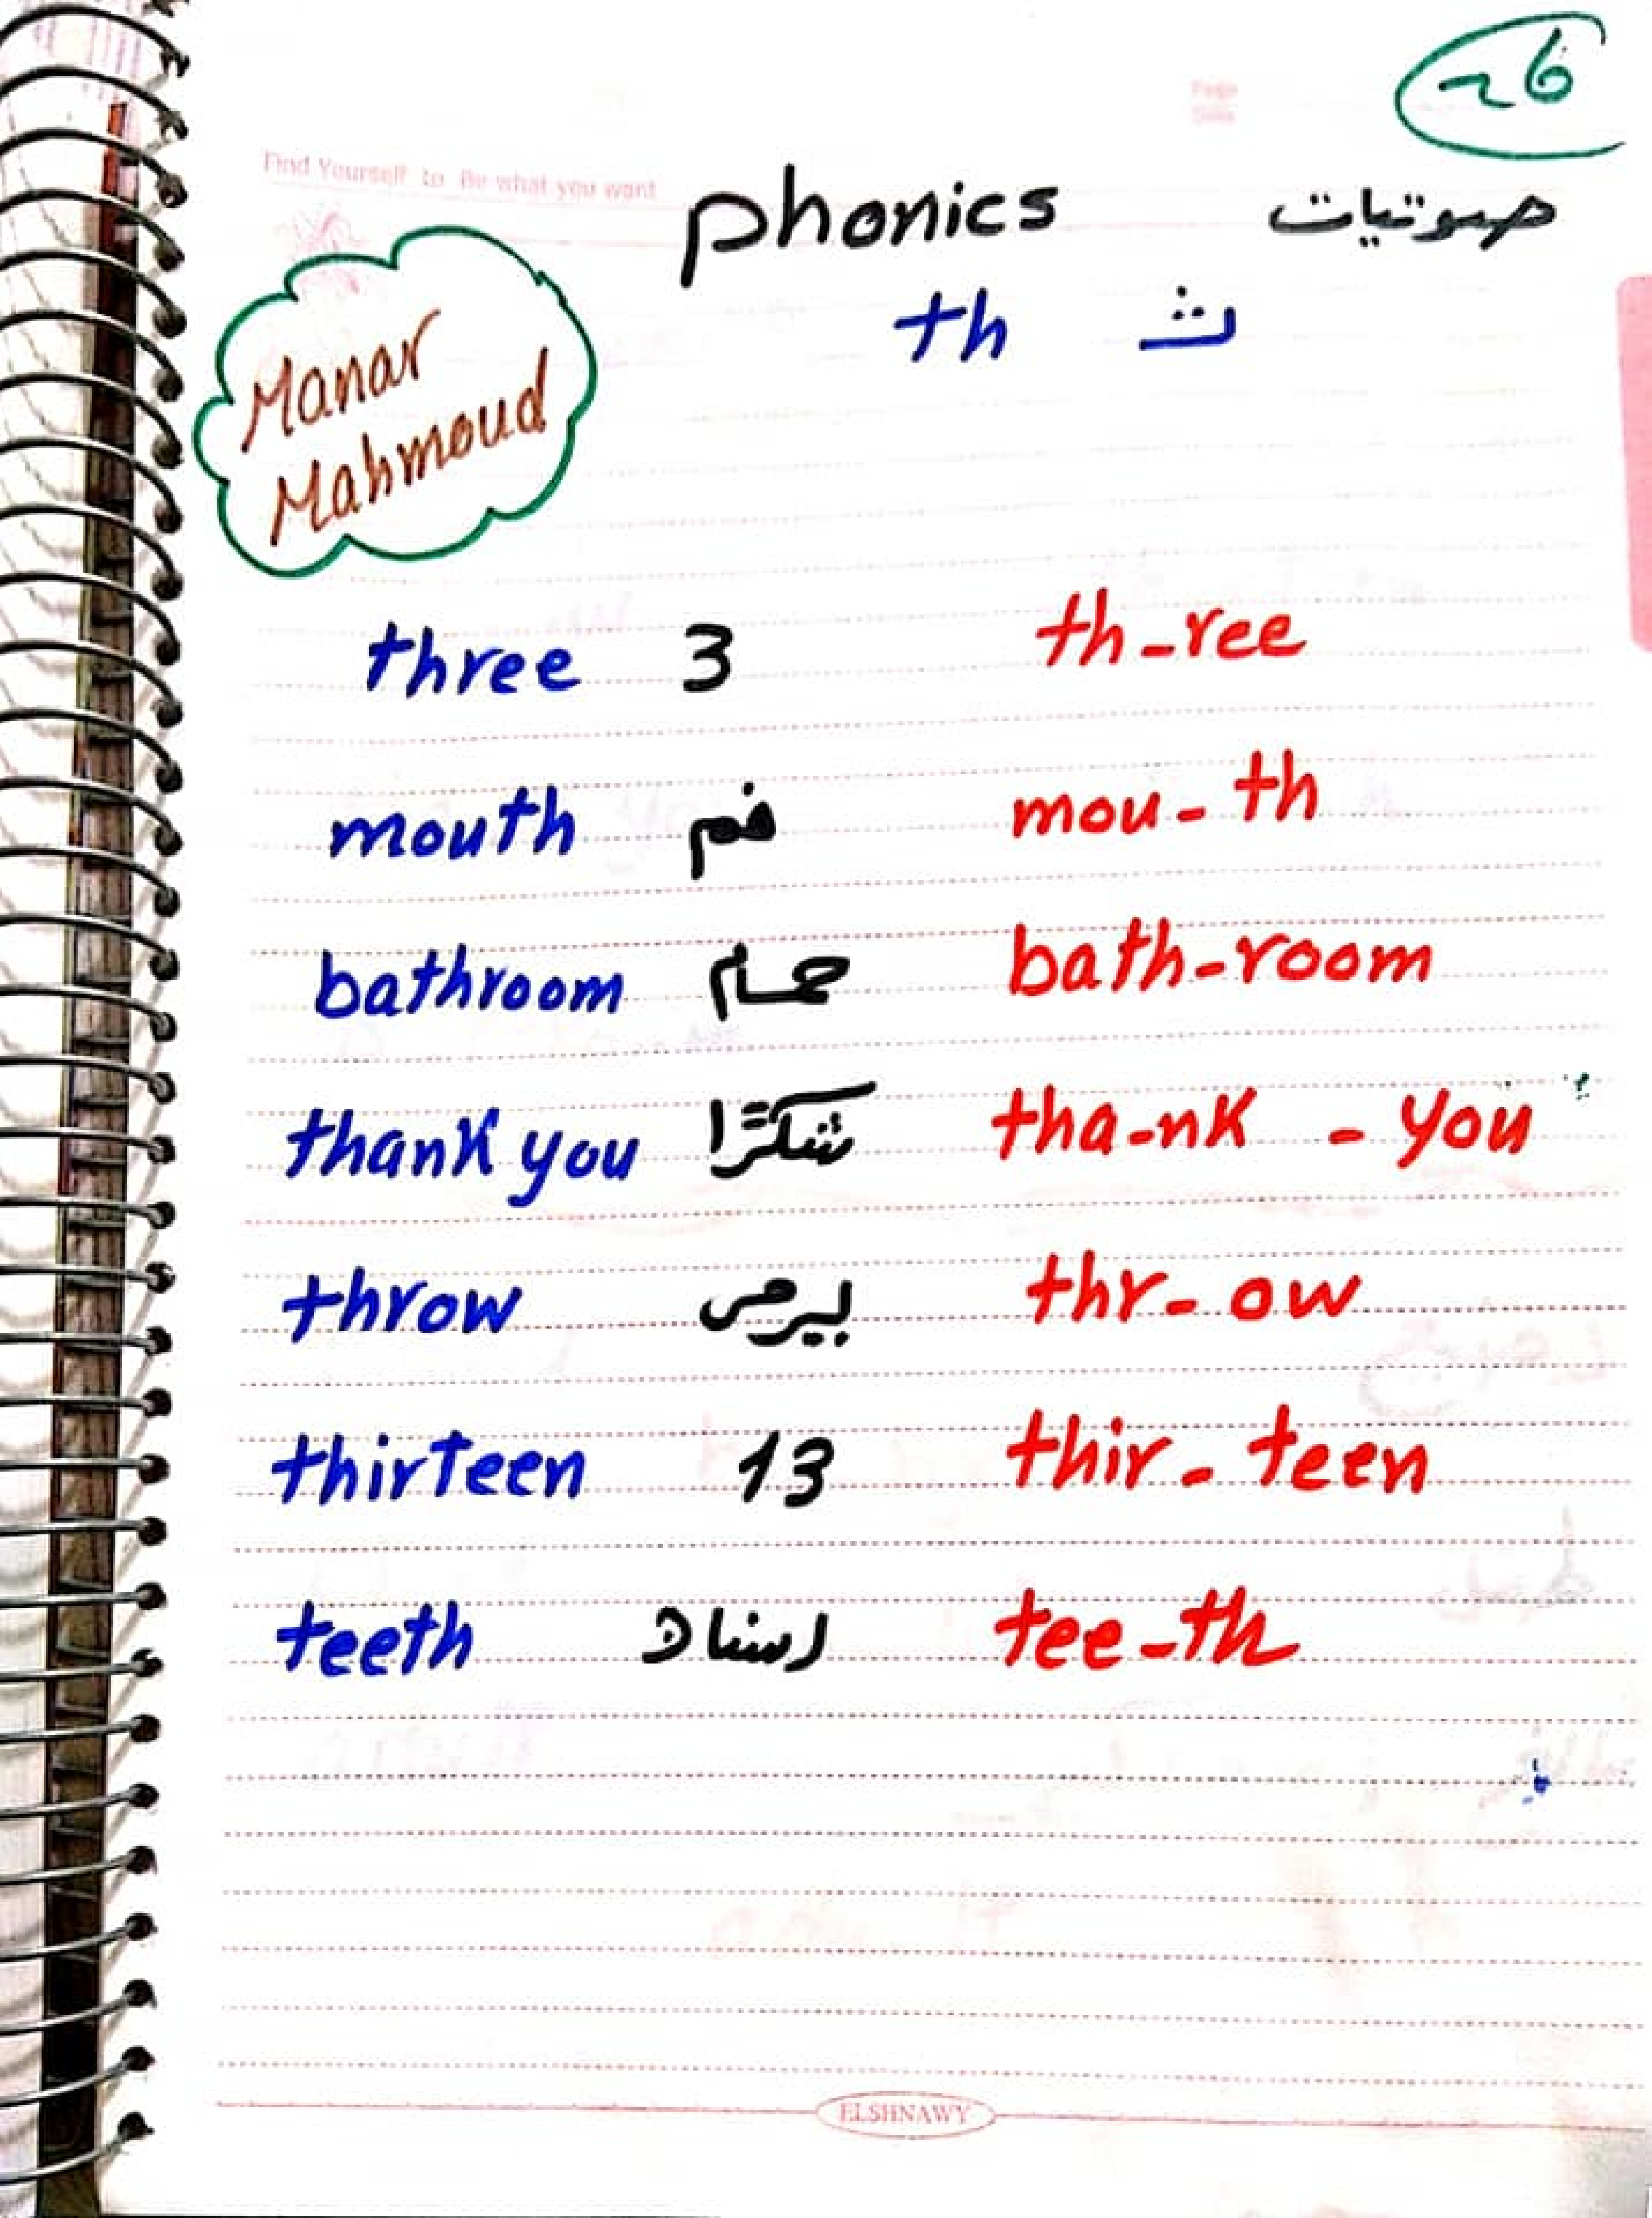 26
Page
Date
Find Yourself to Be what you want
phonics صوتيات
th ث
Manar
Mahmoud
three 3 th-ree
mouth فم mou-th
bathroom حمام bath-room
thank you شكرًا tha-nk - you
throw يرمى thr-ow
thirteen 13 thir-teen
teeth اسنان tee-th
ELSHNAWY